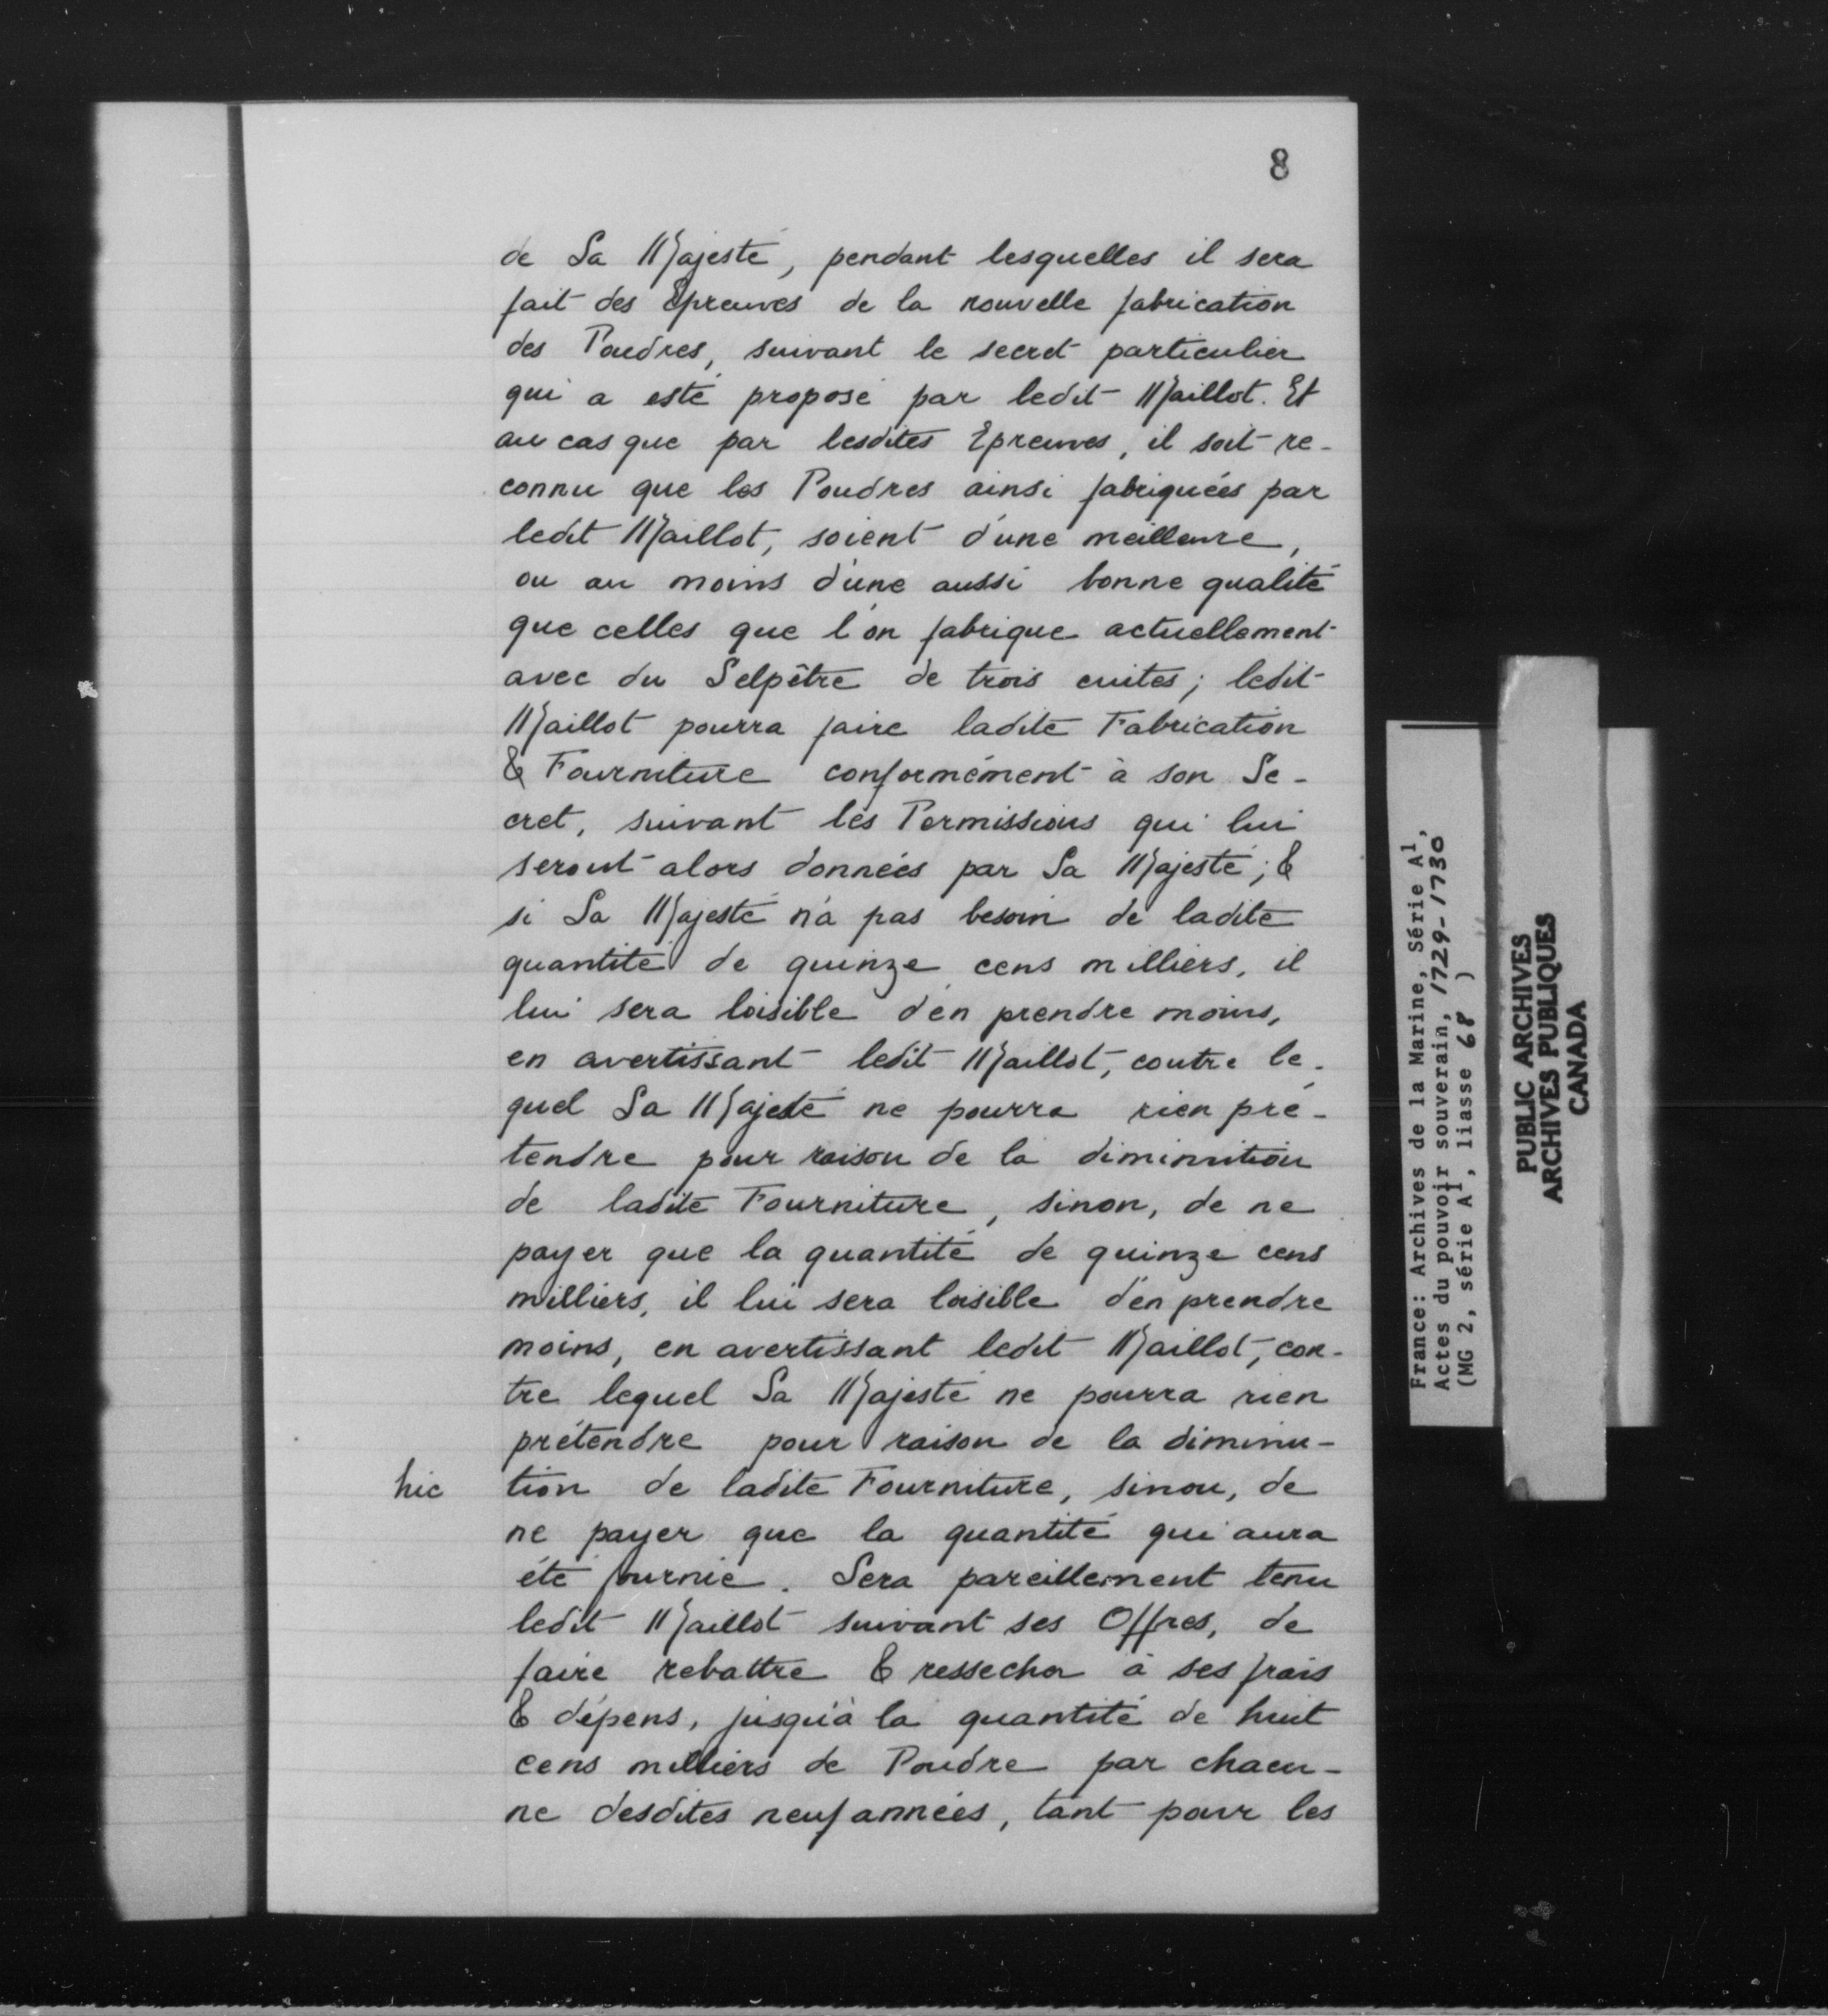 8
de Sa Majesté, pendant lesquelles il sera
fait des Epreuves de la nouvelle fabrication
des Poudres, suivant le secret particulier
qui a esté proposé par ledit Maillot. Et
au cas que par lesdites Epreuves, il soit re-
connu que les Poudres ainsi fabriquées par
ledit Maillot, soient d'une meilleure,
ou au moins d'une aussi bonne qualité
que celles que l'on fabrique actuellement
avec du Selpêtre de trois cuites; ledit
Maillot pourra faire ladite Fabrication
& Fourniture conformément à son Se-
cret, suivant les Permissions qui lui
seront alors données par Sa Majesté; &
si Sa Majesté n'a pas besoin de ladite
quantité de quinze cens milliers, il
lui sera loisible d'en prendre moins,
en avertissant ledit Maillot, contre le-
quel Sa Majesté ne pourra rien pré-
tendre pour raison de la diminution
de ladite Fourniture, sinon, de ne
payer que la quantité de quinze cens
milliers, il lui sera loisible d'en prendre
moins, en avertissant ledit Maillot, con-
tre lequel Sa Majesté ne pourra rien
prétendre pour raison de la diminu-
hic tion de ladite Fourniture, sinon, de
ne payer que la quantité qui aura
été fournie. Sera pareillement tenu
ledit Maillot suivant ses Offres, de
faire rebattre & ressecher à ses frais
& dépens, jusqu'à la quantité de huit
cens milliers de Poudre par chacu-
ne desdites neuf années, tant pour les
France: Archives de la Marine, Série A1,
Actes du pouvoir souverain, 1729-1730
(MG 2, série A1, liasse 68 )
PUBLIC ARCHIVES
ARCHIVES PUBLIQUES
CANADA